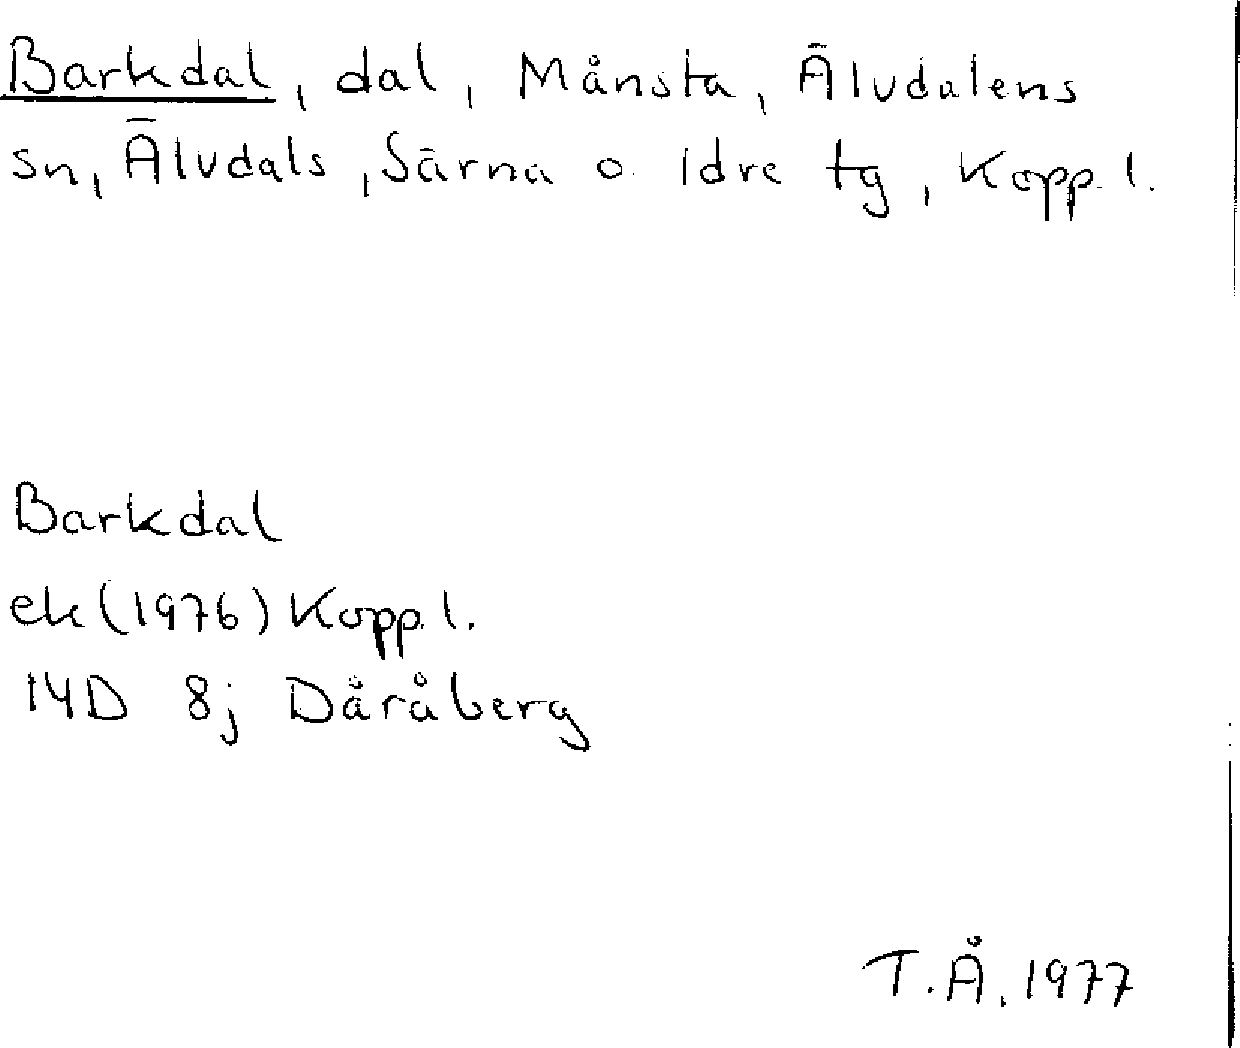 Barkdal, dal, Månsta, Älvdalens
sn, Älvdals, Särna o. Idre tg, Kopp. l.
Barkdal
ek (1976) Kopp. l.
14D 8j Dåråberg
T.Å. 1977